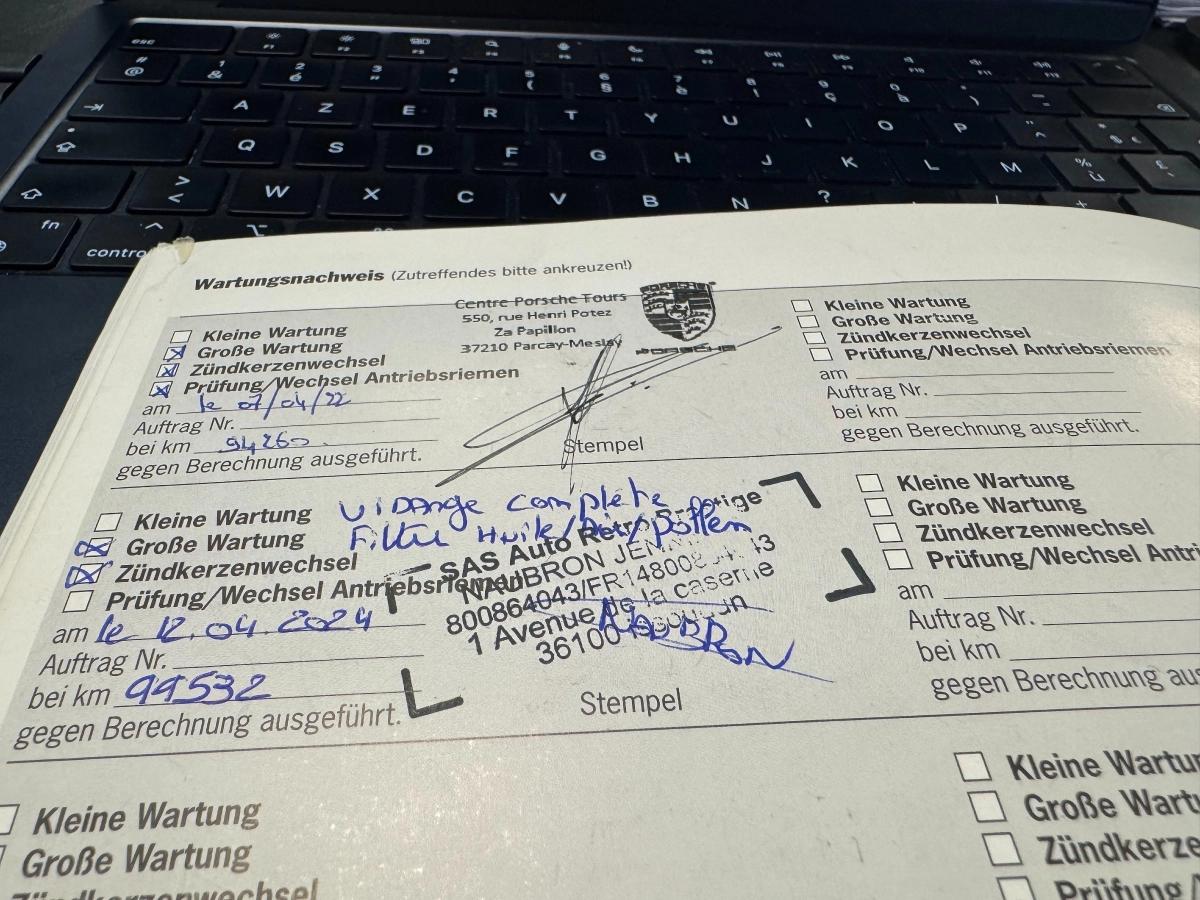 esc F1 F2 F3 F4 F5 F6 F7 F8 F9 F10 F11 F12
# @ 1 & 2 é 3 " 4 ' 5 ( 6 § 7 è 8 ! 9 ç 0 à ° ) _ -
A Z E R T Y U I O P ¨ ^ * €
Q S D F G H J K L M % ù £
> < W X C V B N ?
fn control
Wartungsnachweis (Zutreffendes bitte ankreuzen!)
Kleine Wartung
Große Wartung
Zündkerzenwechsel
Prüfung/Wechsel Antriebsriemen
am le 07/04/22
Auftrag Nr.
bei km 94260
gegen Berechnung ausgeführt.
Centre Porsche Tours
550, rue Henri Potez
Za Papillon
37210 Parcay-Meslay
PORSCHE
Stempel
Kleine Wartung
Große Wartung
Zündkerzenwechsel
Prüfung/Wechsel Antriebsriemen
am
Auftrag Nr.
bei km
gegen Berechnung ausgeführt.
Kleine Wartung
Große Wartung
Zündkerzenwechsel
Prüfung/Wechsel Antriebsriemen
am le 12.04.2024
Auftrag Nr.
bei km 99532
gegen Berechnung ausgeführt.
Vidange complete
Filtre Huile/Air/pollen
SAS Auto Rétro
NAUBRON
800864043/FR14800
1 Avenue de la caserne
36100
NAUBRON
Stempel
Kleine Wartung
Große Wartung
Zündkerzenwechsel
Prüfung/Wechsel Antri
am
Auftrag Nr.
bei km
gegen Berechnung aus
Kleine Wartung
Große Wartung
Zündkerzenwechsel
Kleine Wartu
Große Wart
Zündkerze
Prüfung /